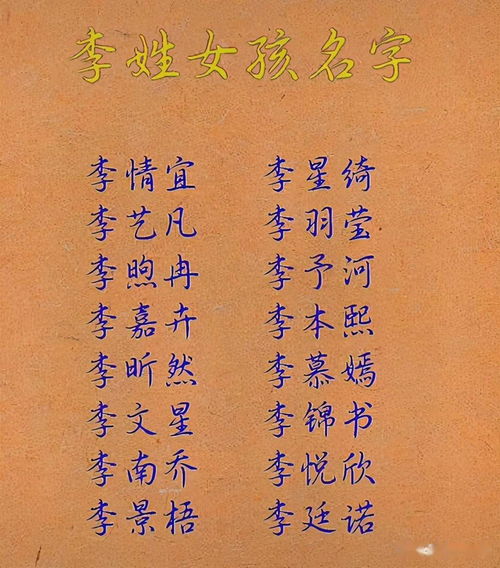 李姓女孩名字
李情宜 李星绮
李艺凡 李羽莹
李煦冉 李予河
李嘉卉 李本熙
李昕然 李慕嫣
李文星 李锦书
李南乔 李悦欣
李景梧 李廷诺